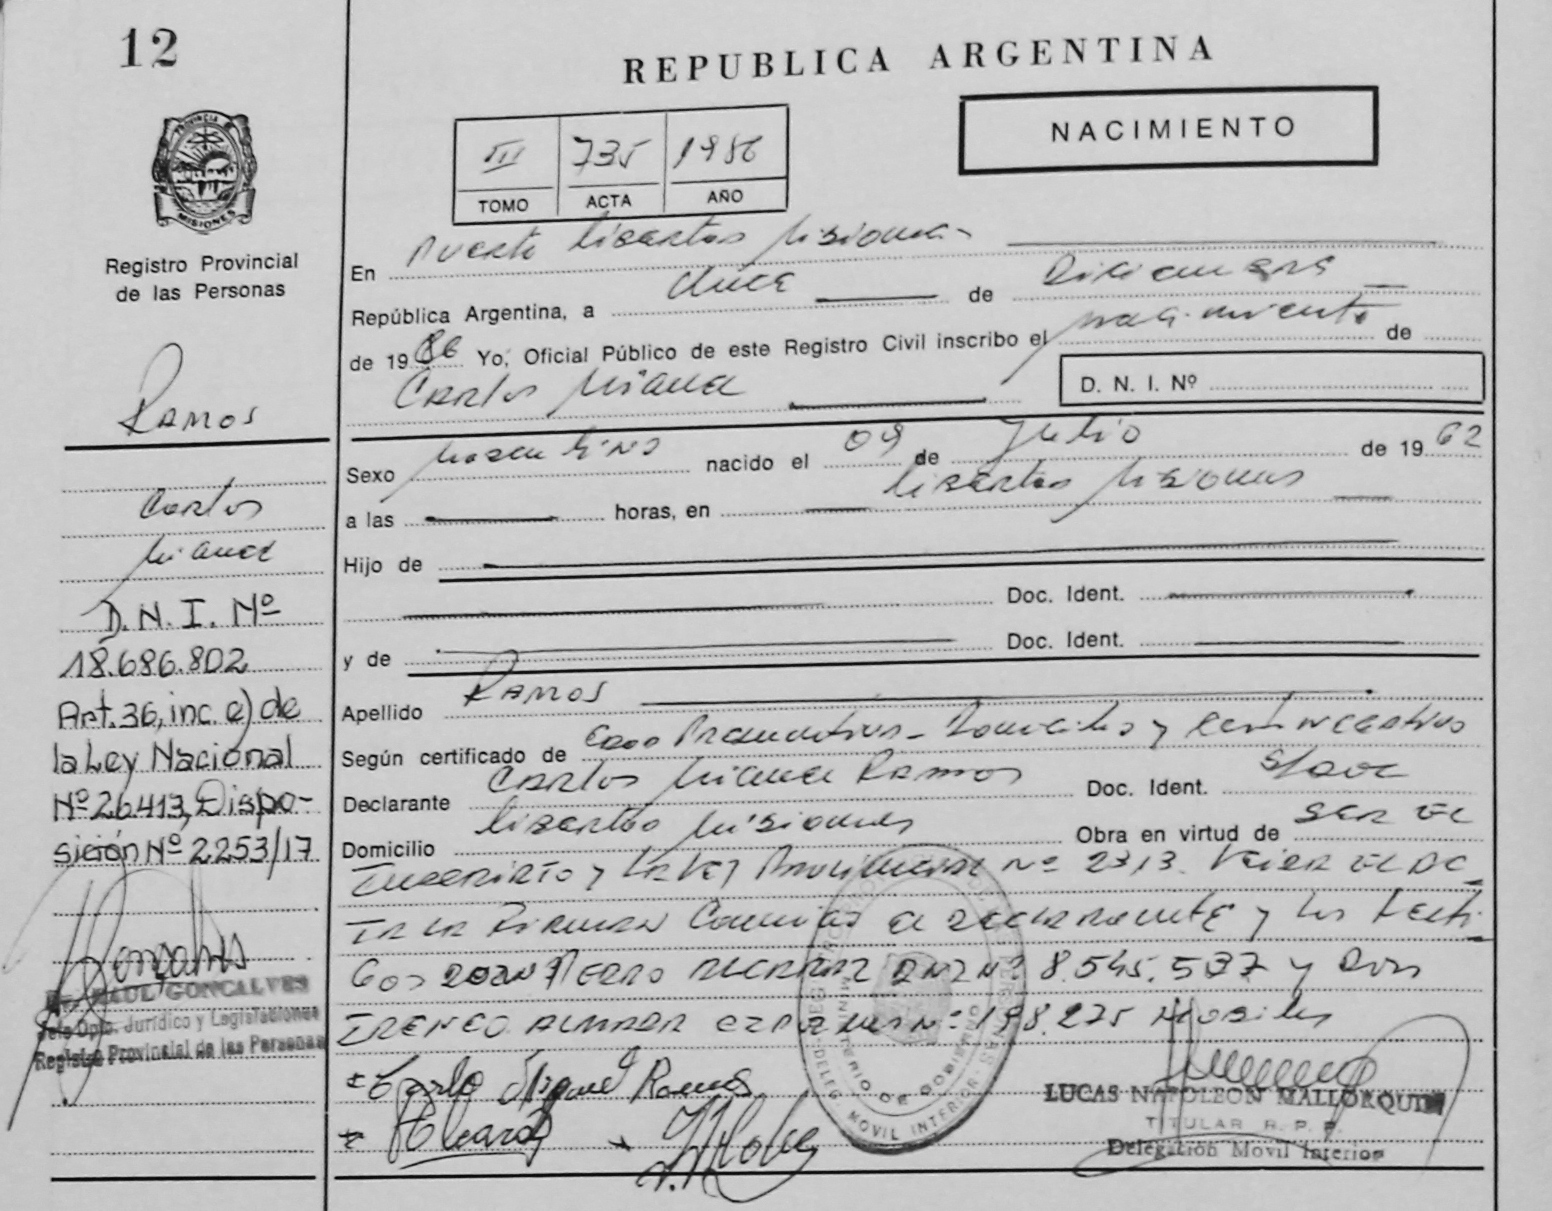 12
REPUBLICA ARGENTINA
NACIMIENTO
III 735 1986
TOMO ACTA AÑO
PROVINCIA DE
MISIONES
Registro Provincial
de las Personas
Ramos
Carlos
Miguel
D.N.I. Nº
18.686.802
Art.36, inc. e) de
la Ley Nacional
Nº 26.413, Dispo-
sición Nº 2253/17
RAUL GONCALVES
Jefe Dpto. Jurídico y Legislaciones
Registro Provincial de las Personas
En Puerto Libertad Misiones
República Argentina, a doce de Diciembre
de 1986 Yo, Oficial Público de este Registro Civil inscribo el nacimiento de
Carlos Miguel D. N. I. Nº
Sexo Masculino nacido el 09 de Julio de 1962
a las horas, en Libertad Misiones
Hijo de
Doc. Ident.
y de Doc. Ident.
Apellido Ramos
Según certificado de y
Declarante Carlos Miguel Ramos Doc. Ident. S/Doc
Domicilio Libertad Misiones Obra en virtud de ser el
Inscripto y la Ley Provincial Nº 2313.
la el declarante y los testi-
gos 8.545.537 y Don
Ireneo 198.275
Carlo Miguel Ramos
MINISTERIO DE GOBIERNO
DELEG. MOVIL INTERIOR
LUCAS NAPOLEON MALLORQUIN
TITULAR R. P. P.
Delegación Movil Interior